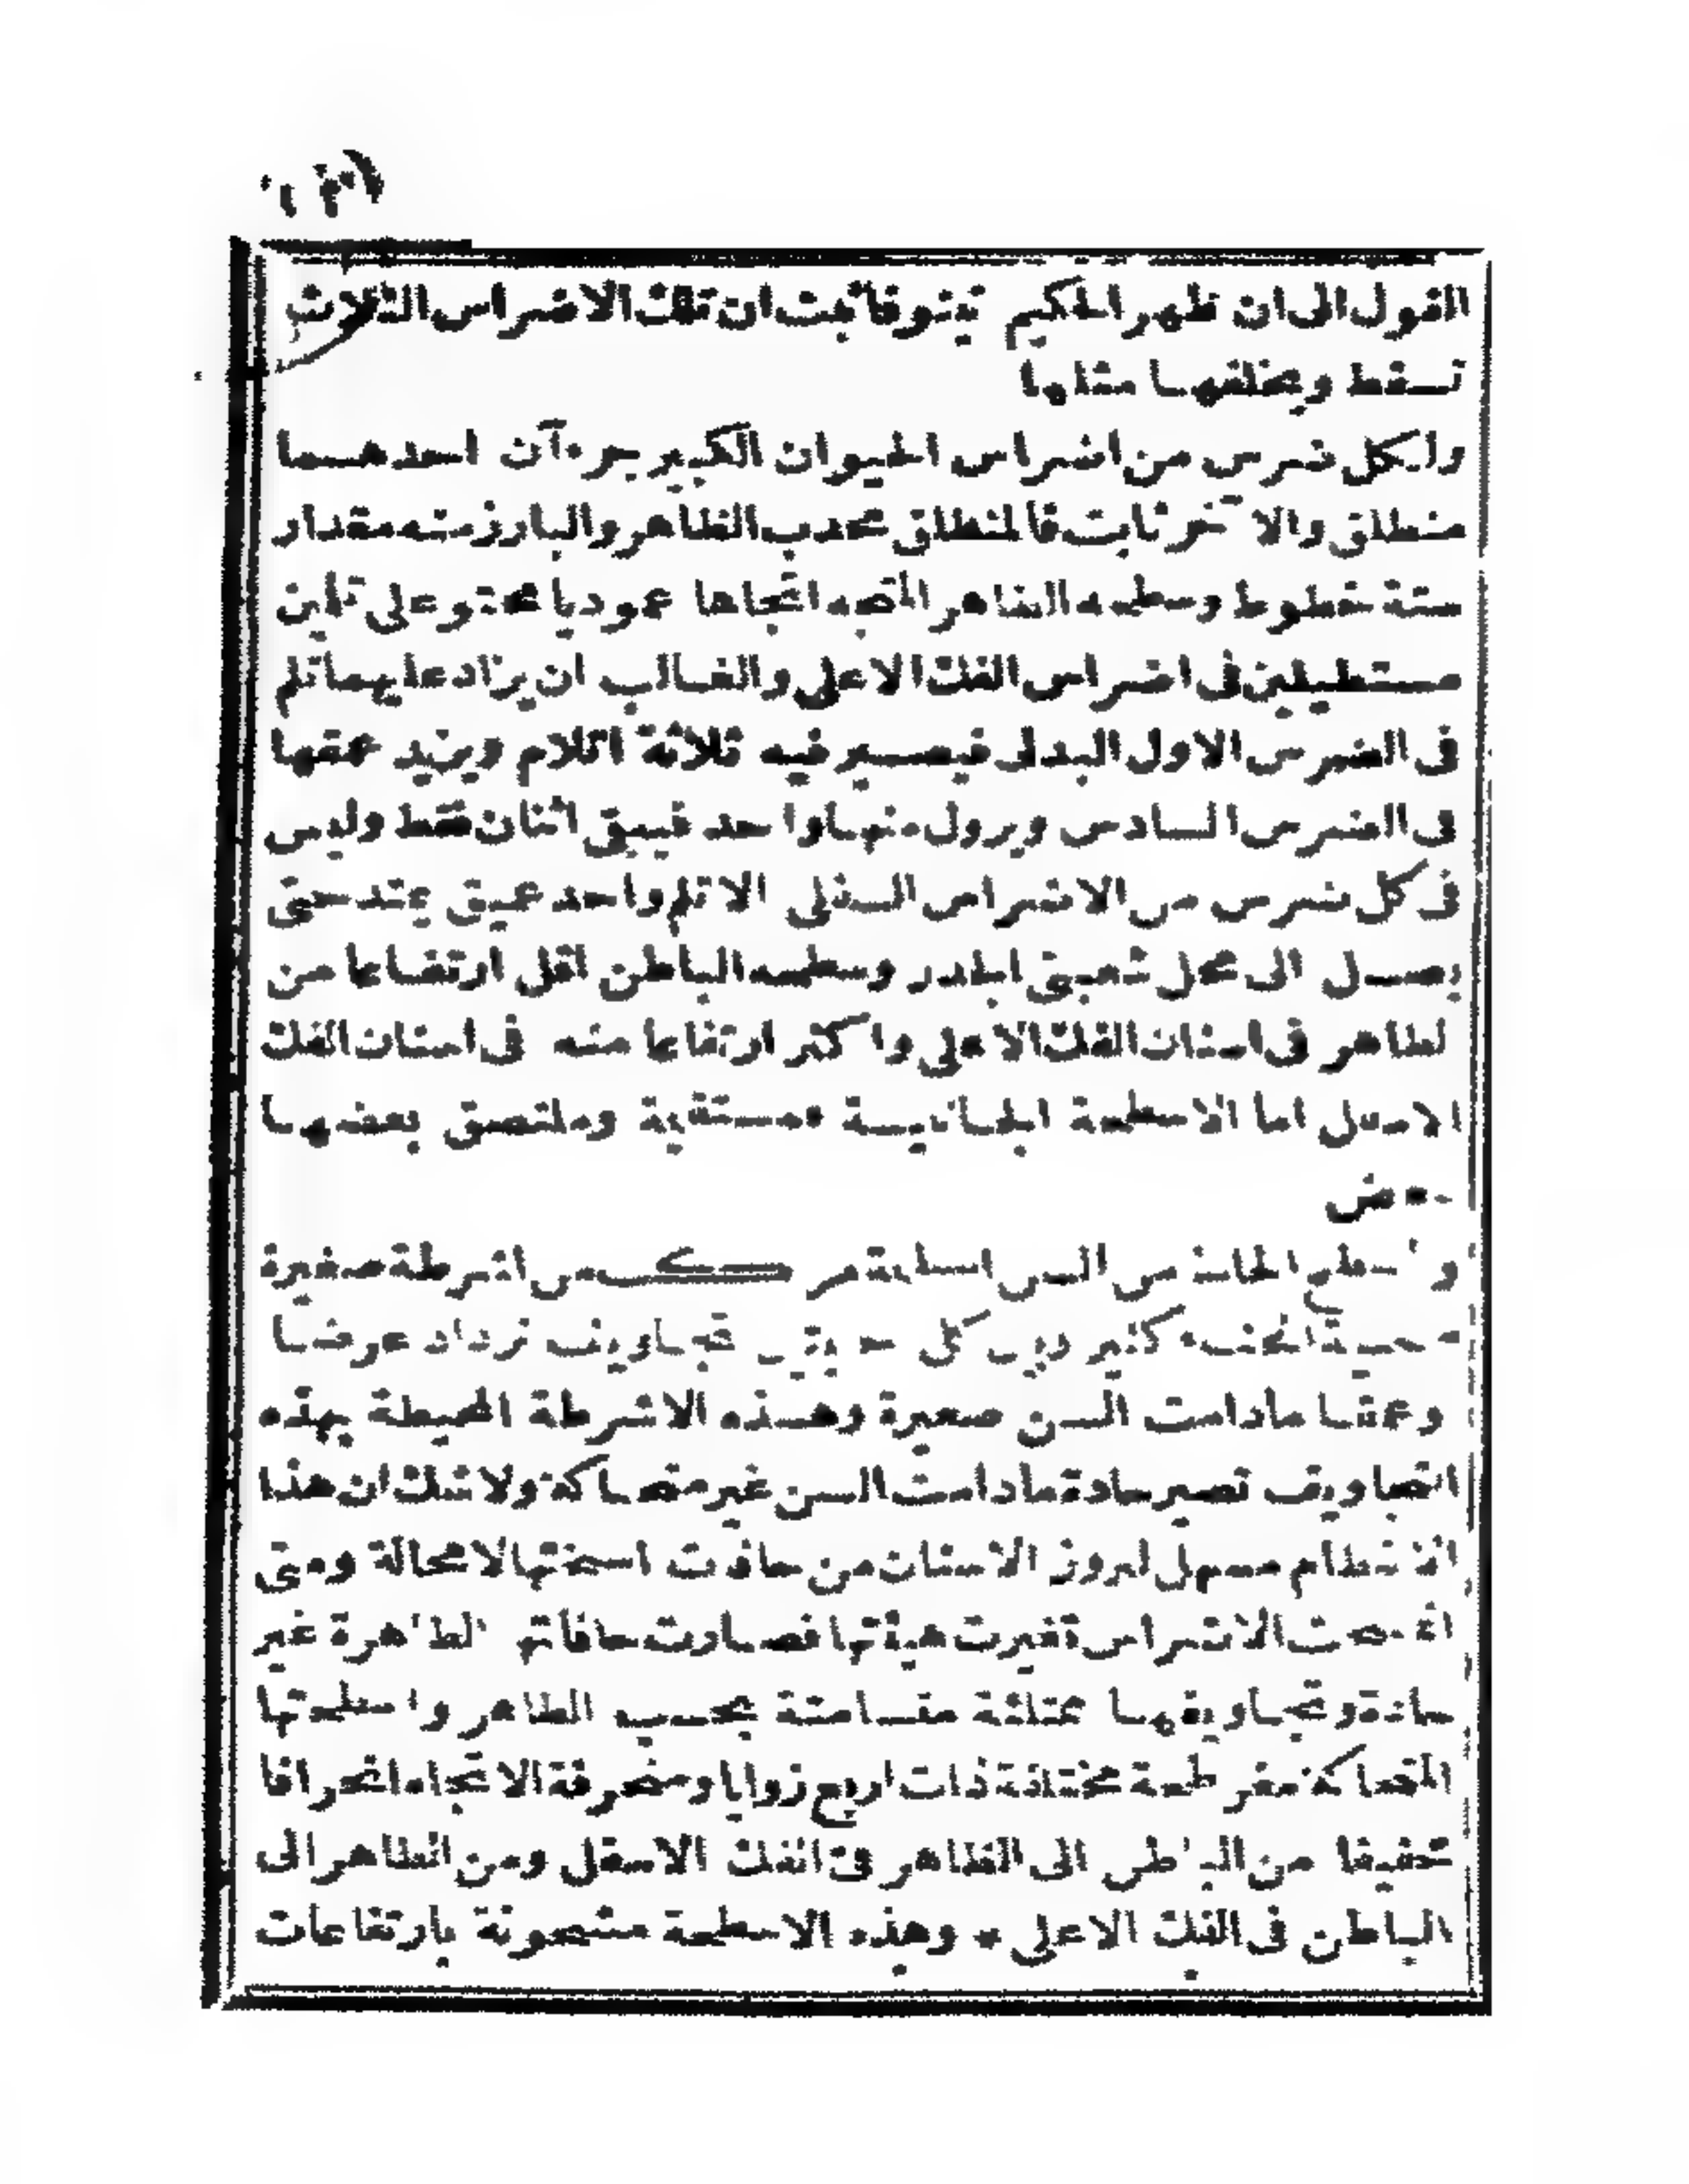 القول الى ان ظهر الحكيم تينو فاثبت ان تلك الاضراس الثلاث
تسقط ويخلفها مثلها
ولكل ضرس من اضراس الحيوان الكبير جزءآن احدهما
منطلق والآخر ثابت فالمنطلق محدب الظاهر والبارز منه مقدار
ستة خطوط وسطحه الظاهر المتجه اتجاها عموديا محتو على ثلمين
مستطيلين فى اضراس الفك الاعلى والغالب ان يزاد عليهما ثلم
فى الضرس الاول البدلى فيصير فيه ثلاثة اثلام ويزيد عمقها
فى الضرس السادس ويزول منها واحد فيبقى اثنان فقط وليس
فى كل ضرس من الاضراس السفلى الا ثلم واحد عميق يمتد حتى
يصل الى محل تشعب الجذر وسطحه الباطن اقل ارتفاعا من
لظاهر فى اسنان الفك الاعلى واكثر ارتفاعا منه فى اسنان الفك
الاسفل اما الاسطحة الجانبية مستقيمة وملتصق بعضها
ببعض
والسطح من السن مركب من اشرطة صغيرة
كل تجاويف تزداد عرضا
وعمقا مادامت السن صغيرة وهذه الاشرطة المحيطة بهذه
التجاويف تصير حادة مادامت السن غير متحاكة ولاشك ان هذا
الانتظام مسهل لبروز الاسنان من حافات اسنختها لا محالة ومتى
الاضراس تغيرت هيئتها فصارت حافاتها الظاهرة غير
حادة وتجاويفها ممتلئة مقسامتة بحسب الظاهر واسطحتها
المتحاكة مفرطحة مختلفة ذات اربع زوايا ومنحرفة الاتجاه انحرافا
خفيفا من الباطن الى الظاهر فى الفك الاسفل ومن الظاهر الى
الباطن فى الفك الاعلى * وهذه الاسطحة مشحونة بارتفاعات